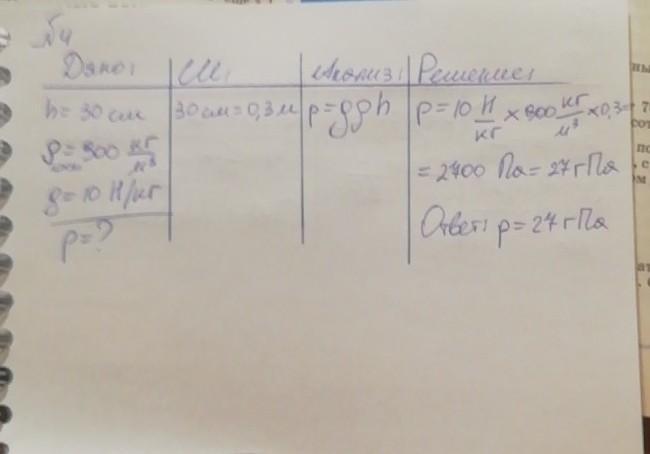 №4
Дано: СИ: Анализ: Решение:
h = 30 см 30 см = 0,3 м p = gρh p = 10 Н/кг × 900 кг/м³ × 0,3 =
ρ = 900 кг/м³
= 2700 Па = 27 гПа
g = 10 Н/кг
p = ?
Ответ: p = 27 гПа